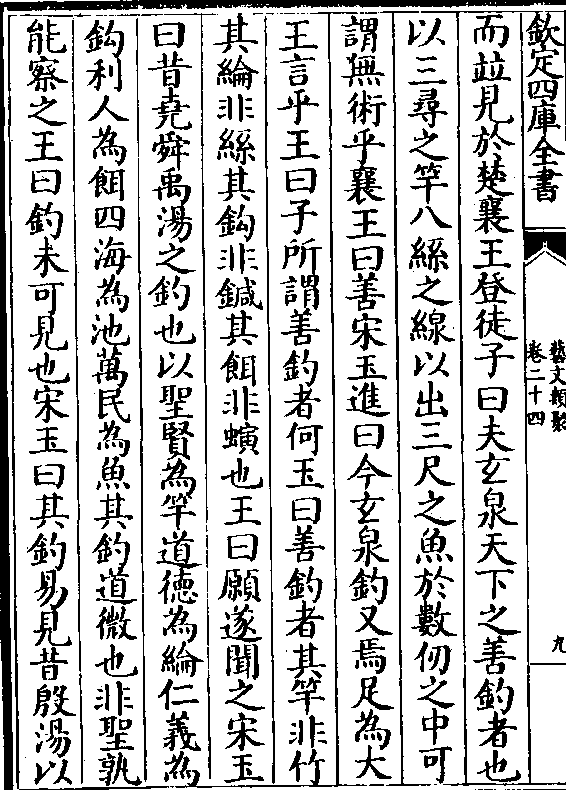 欽定四庫全書
藝文類聚
卷二十四
九
而竝見於楚襄王登徒子曰夫玄泉天下之善釣者也
以三尋之竿八絲之線以出三尺之魚於數仞之中可
謂無術乎襄王曰善宋玉進曰今玄泉釣又焉足為大
王言乎王曰子所謂善釣者何玉曰善釣者其竿非竹
其綸非絲其鈎非鍼其餌非螾也王曰願遂聞之宋玉
曰昔堯舜禹湯之釣也以聖賢為竿道徳為綸仁義為
鈎利人為餌四海為池萬民為魚其釣道微也非聖孰
能察之王曰釣未可見也宋玉曰其釣易見昔殷湯以